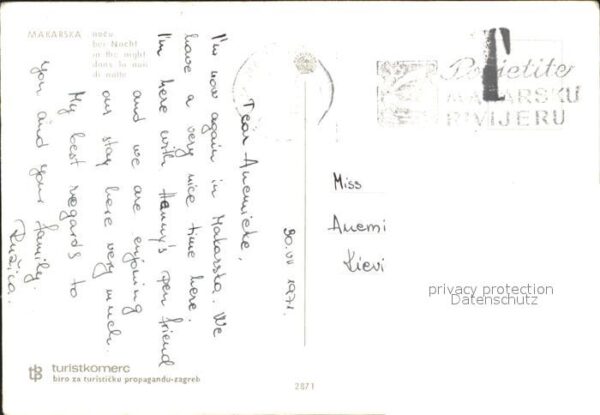 MAKARSKA noću
bei Nacht
in the night
dans la nuit
di notte
30. VII 1971.
Dear Anemieke,
I'm now again in Makarska. We
have a very nice time here.
I'm here with Hanny's pen friend
and we are enjoying
our stay here very much.
My best regards to
you and your family.
Ružica.
turistkomerc
biro za turističku propagandu-zagreb
2871
Posjetite
MAKARSKU
RIVIJERU
T
Miss
Anemi
Kievi
privacy protection
Datenschutz